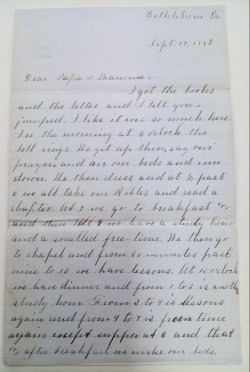 Bethlehem Pa.
Sept. 17, 1889.
Dear Papa & Mamma:
I got the books
and the letter and I tell you I
jumped. I like it ever so much here.
In the morning at 6 o'clock the
bell rings. We get up then, say our
prayers and air our beds and
down. We then dress and at ½ past
6 we all take our Bibles and read a
chapter. At 7 we go to breakfast
and then till 8 we have a study hour
and a so called free-time. We then go
to chapel and from 20 minutes past
nine to 12 we have lessons. At 12 o'clock
we have dinner and from 1 to 2 is another
study hour. From 2 to 4 is lessons
again and from 4 to 7 is free time
again except supper at 6 and that
after breakfast we make our beds.